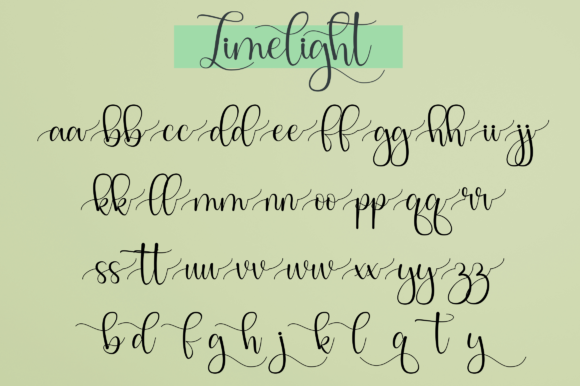 Limelight
aa bb cc dd ee ff gg hh ii jj
kk ll mm nn oo pp qq rr
ss tt uu vv ww xx yy zz
b d f g h j k l q t y